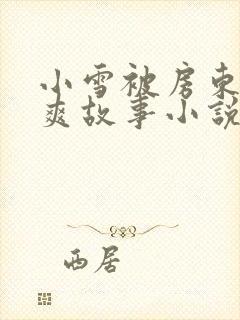 小雪被房东
爽故事小说
西居